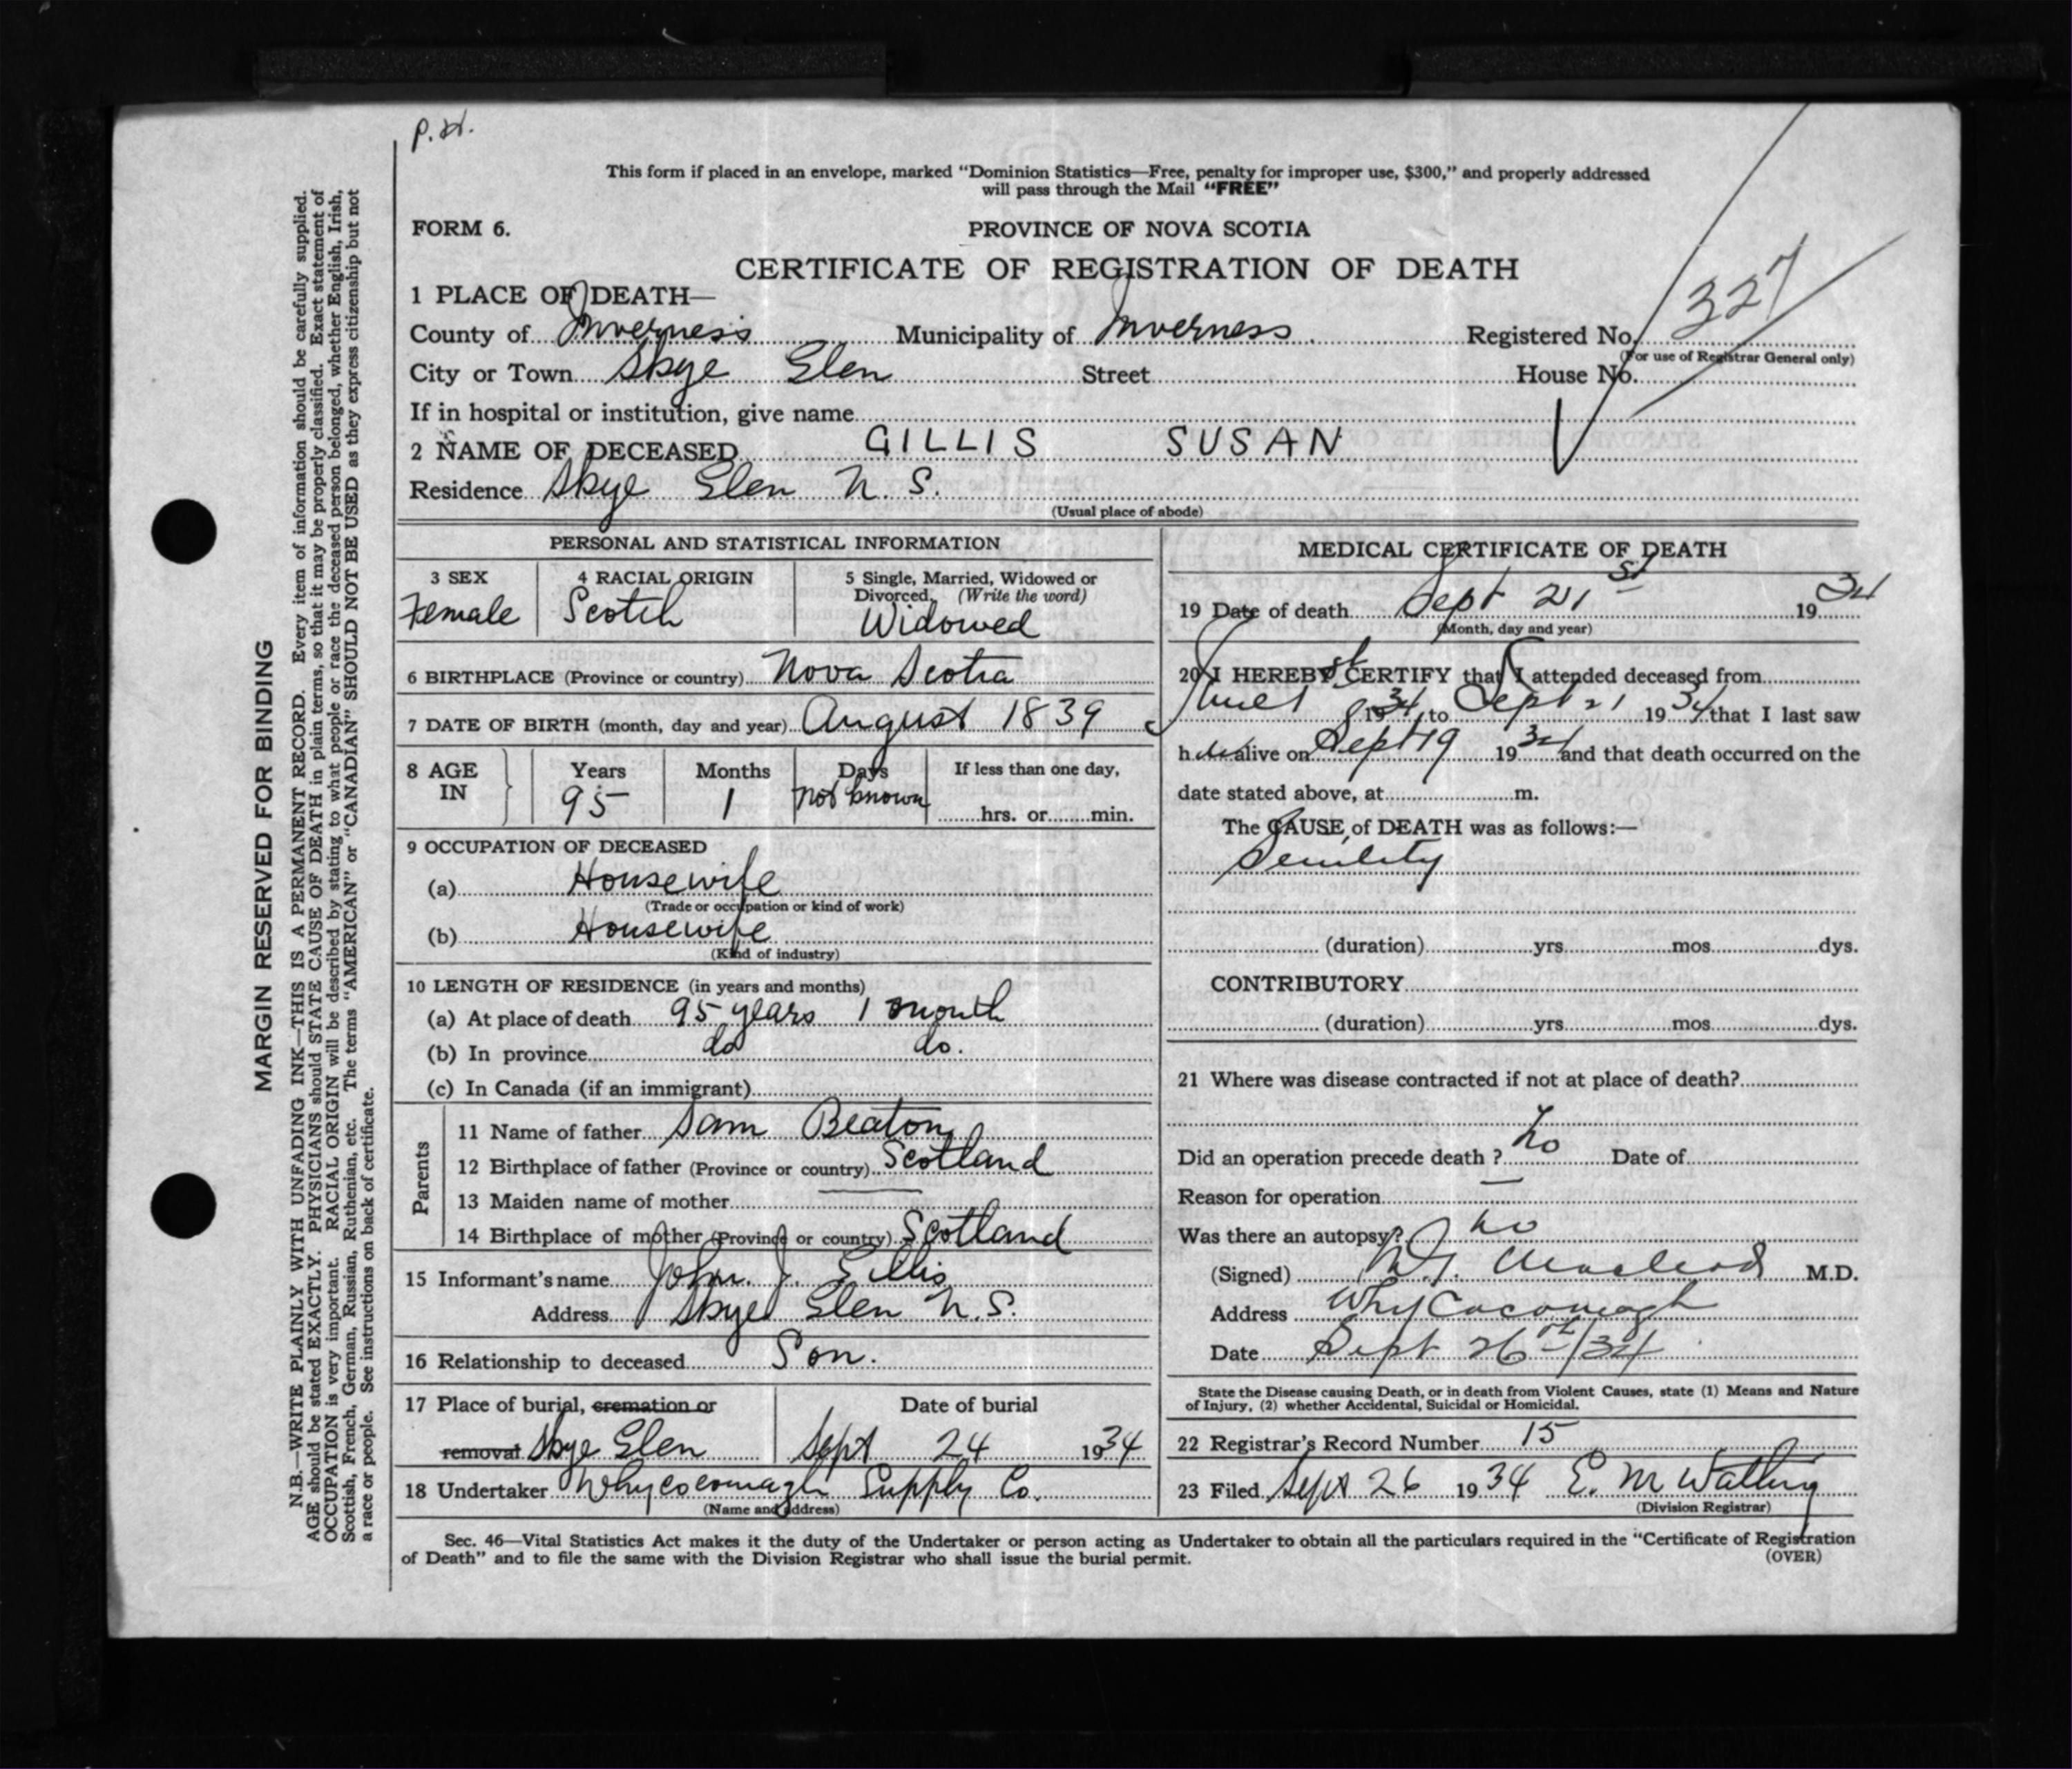 P.H.
This form if placed in an envelope, marked "Dominion Statistics—Free, penalty for improper use, $300," and properly addressed
will pass through the Mail "FREE"
FORM 6.
PROVINCE OF NOVA SCOTIA
CERTIFICATE OF REGISTRATION OF DEATH
1 PLACE OF DEATH—
County of Inverness Municipality of Inverness Registered No. 327
(For use of Registrar General only)
City or Town Skye Glen Street House No.
If in hospital or institution, give name
2 NAME OF DECEASED GILLIS SUSAN
Residence Skye Glen N. S.
(Usual place of abode)
PERSONAL AND STATISTICAL INFORMATION
3 SEX
Female
4 RACIAL ORIGIN
Scotch
5 Single, Married, Widowed or
Divorced. (Write the word)
Widowed
6 BIRTHPLACE (Province or country) Nova Scotia
7 DATE OF BIRTH (month, day and year) August 1839
8 AGE
IN
Years
95
Months
1
Days
not known
If less than one day,
hrs. or min.
9 OCCUPATION OF DECEASED
(a) Housewife
(Trade or occupation or kind of work)
(b) Housewife
(Kind of industry)
10 LENGTH OF RESIDENCE (in years and months)
(a) At place of death 95 years 1 month
(b) In province do do.
(c) In Canada (if an immigrant)
Parents
11 Name of father Sam Beaton
12 Birthplace of father (Province or country) Scotland
13 Maiden name of mother —
14 Birthplace of mother (Province or country) Scotland
15 Informant's name John. J. Gillis
Address Skye Glen N.S.
16 Relationship to deceased Son.
17 Place of burial, cremation or
removal Skye Glen
Date of burial
Sept 24 1934
18 Undertaker Whycocomagh Supply Co.
(Name and address)
MEDICAL CERTIFICATE OF DEATH
19 Date of death Sept 21st 1934
(Month, day and year)
20 I HEREBY CERTIFY that I attended deceased from
June 1st 1934, to Sept 21 1934 that I last saw
her alive on Sept 19 1934 and that death occurred on the
date stated above, at m.
The CAUSE of DEATH was as follows:—
Senility
(duration) yrs. mos. dys.
CONTRIBUTORY
(duration) yrs. mos. dys.
21 Where was disease contracted if not at place of death?
Did an operation precede death? No Date of
Reason for operation —
Was there an autopsy? No
(Signed) Macleod M.D.
Address Whycocomagh
Date Sept 26th/34
State the Disease causing Death, or in death from Violent Causes, state (1) Means and Nature
of Injury, (2) whether Accidental, Suicidal or Homicidal.
22 Registrar's Record Number 15
23 Filed Sept 26 1934 E. M Watling
(Division Registrar)
Sec. 46—Vital Statistics Act makes it the duty of the Undertaker or person acting as Undertaker to obtain all the particulars required in the "Certificate of Registration
of Death" and to file the same with the Division Registrar who shall issue the burial permit.
(OVER)
MARGIN RESERVED FOR BINDING
N.B.—WRITE PLAINLY WITH UNFADING INK—THIS IS A PERMANENT RECORD. Every item of information should be carefully supplied.
AGE should be stated EXACTLY. PHYSICIANS should STATE CAUSE OF DEATH in plain terms, so that it may be properly classified. Exact statement of
OCCUPATION is very important. RACIAL ORIGIN will be described by stating to what people or race the deceased person belonged, whether English, Irish,
Scottish, French, German, Russian, Ruthenian, etc. The terms "AMERICAN" or "CANADIAN" SHOULD NOT BE USED as they express citizenship but not
a race or people. See instructions on back of certificate.